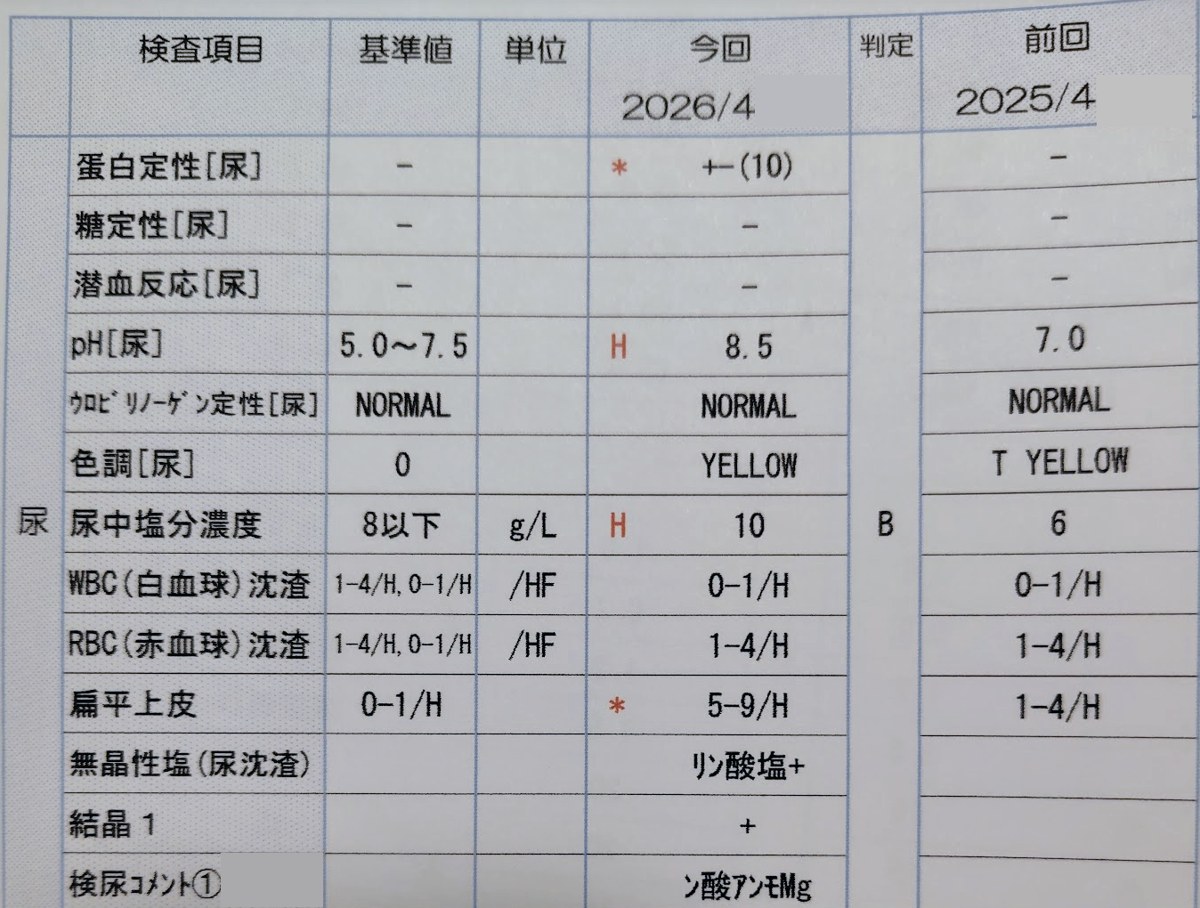 検査項目 基準値 単位 今回 判定 前回
2026/4 2025/4
尿
蛋白定性[尿] - * +-(10) -
糖定性[尿] - - -
潜血反応[尿] - - -
pH[尿] 5.0～7.5 H 8.5 7.0
ｳﾛﾋﾞﾘﾉｰｹﾞﾝ定性[尿] NORMAL NORMAL NORMAL
色調[尿] 0 YELLOW T YELLOW
尿 尿中塩分濃度 8以下 g/L H 10 B 6
WBC(白血球)沈渣 1-4/H,0-1/H /HF 0-1/H 0-1/H
RBC(赤血球)沈渣 1-4/H,0-1/H /HF 1-4/H 1-4/H
扁平上皮 0-1/H * 5-9/H 1-4/H
無晶性塩(尿沈渣) ﾘﾝ酸塩+
結晶1 +
検尿ｺﾒﾝﾄ① ﾝ酸ｱﾝﾓMg